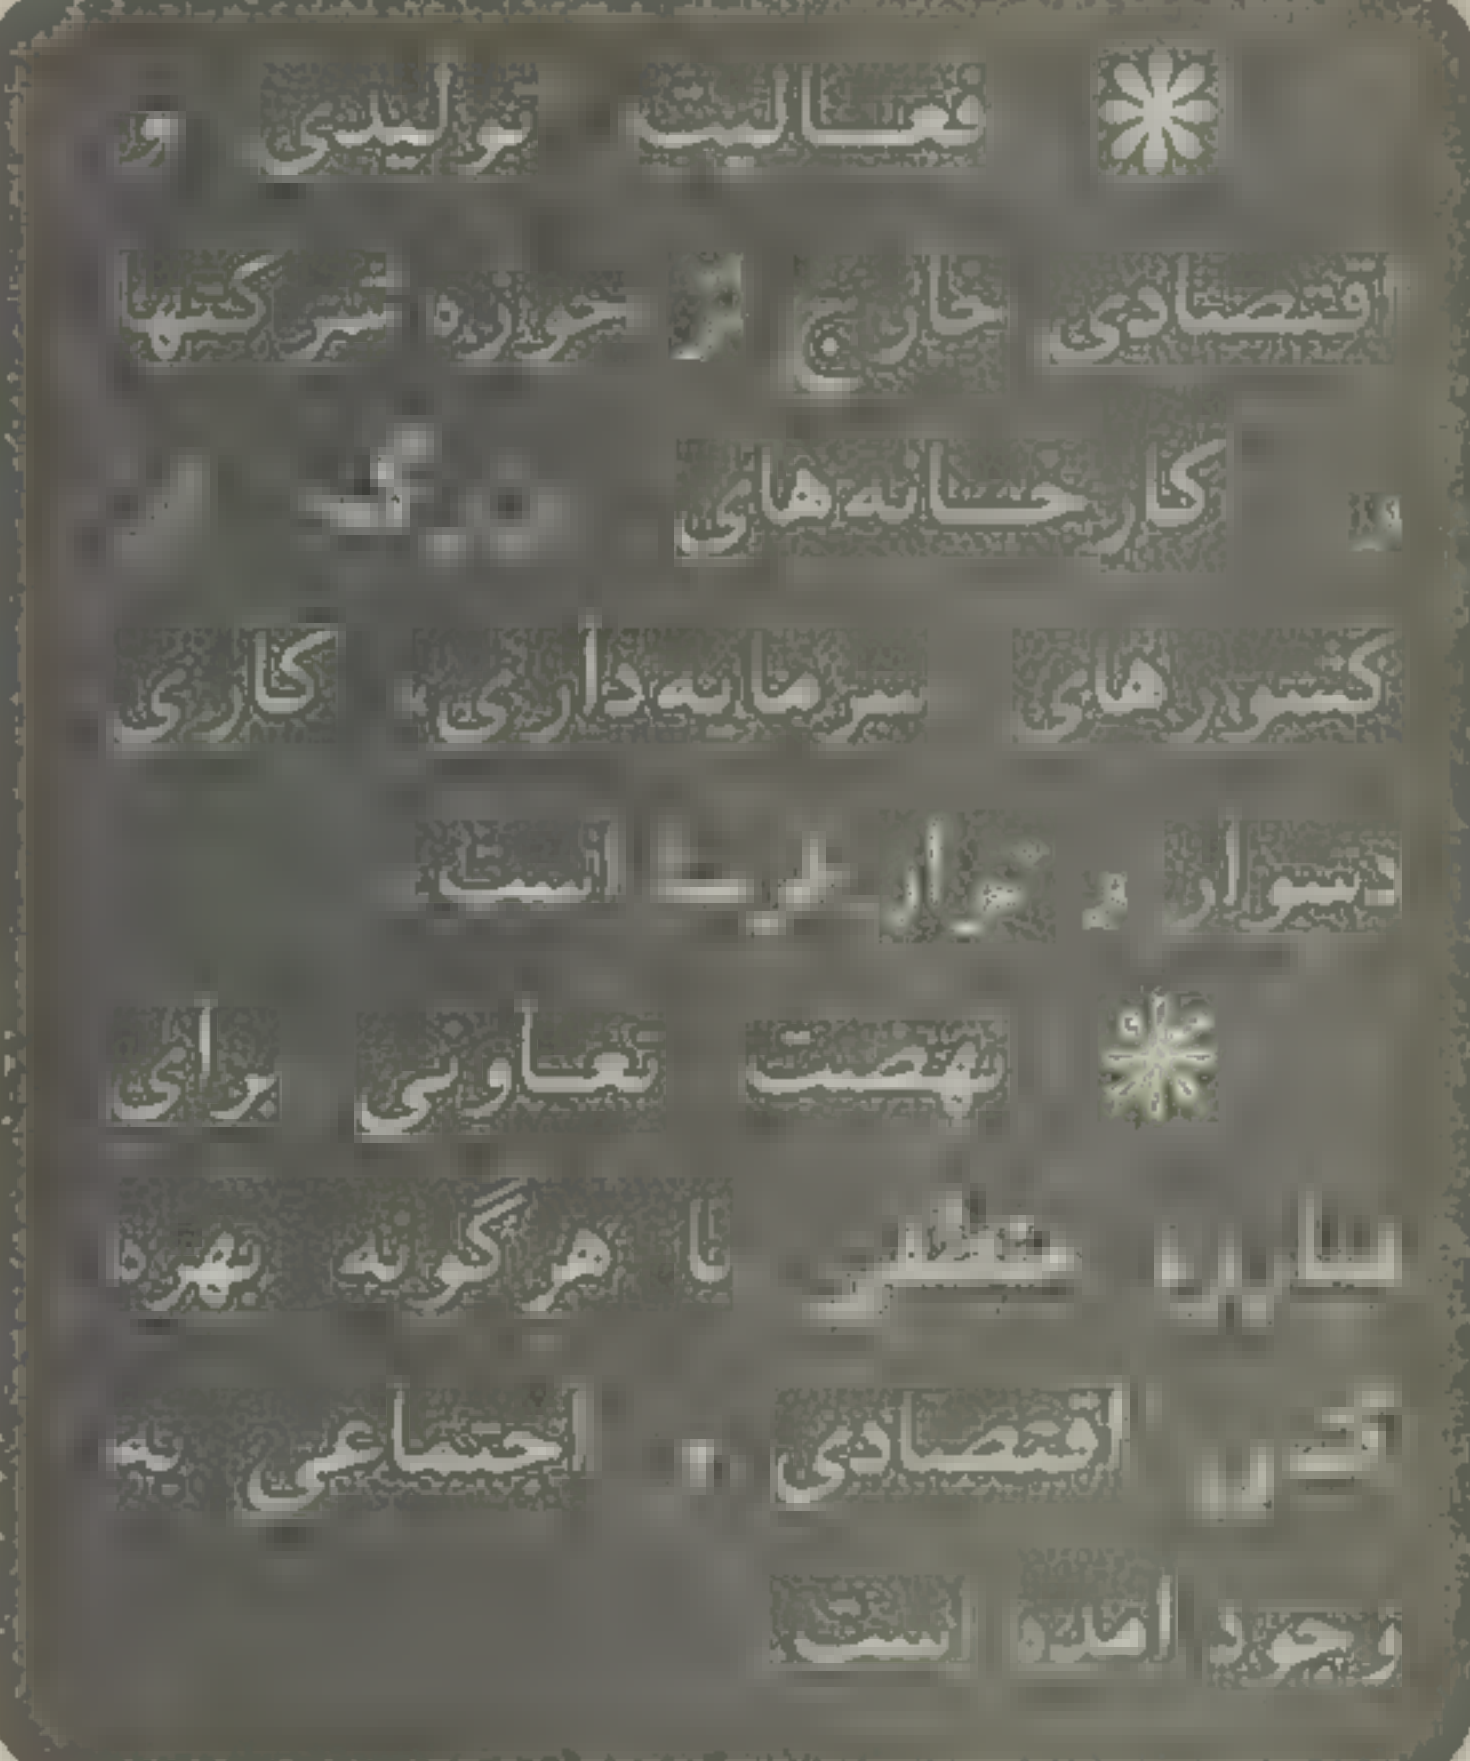 فعالیت تولیدی و
اقتصادی خارج از حوزه شرکتها
و کارخانه‌های بزرگ در
کشورهای سرمایه‌داری، کاری
دشوار و است
نهضت تعاونی برای
با هرگونه بهره
کشی اقتصادی و اجتماعی به
وجود آمده است